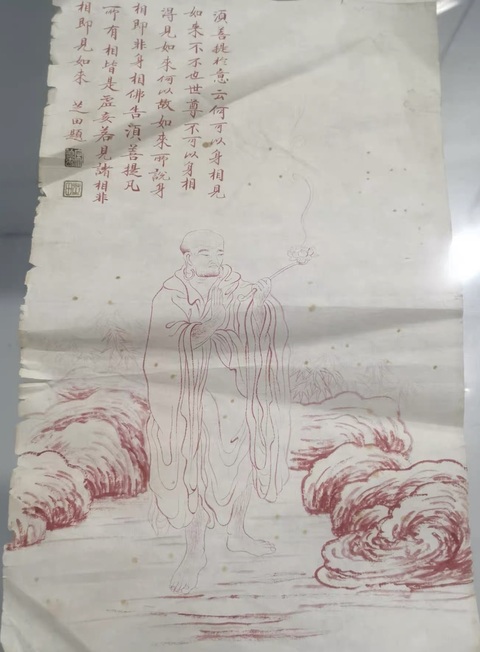 須菩提於意云何可以身相見
如来不不也世尊不可以身相
得見如来何以故如来所說身
相即非身相佛告須菩提凡
所有相皆是虛妄若見諸相非
相即見如来 芝田題